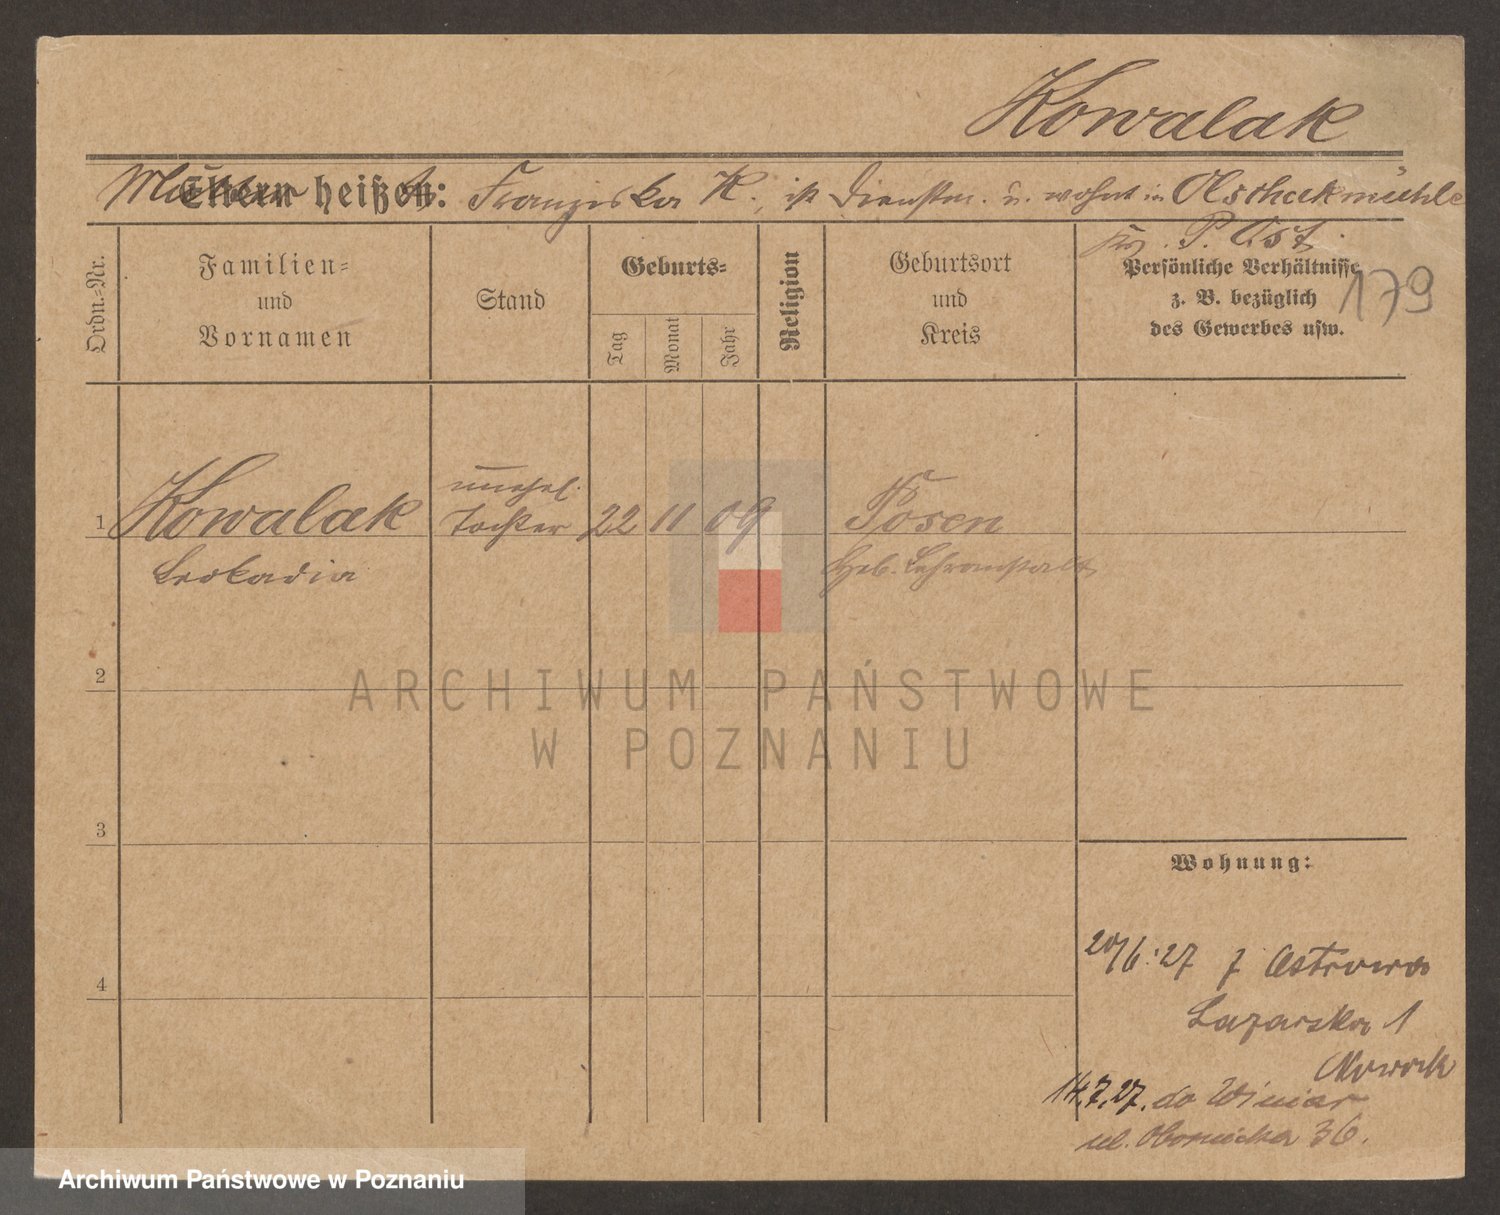 Kowalak
Mutter heißt: Franziska K., ist Dienstm. u. wohnt in Olschakmühle
Krs. P. Ost.
179
Ordn.-Nr.
Familien-
und
Vornamen
Stand
Geburts-
Tag
Monat
Jahr
Religion
Geburtsort
und
Kreis
Persönliche Verhältnisse
z. B. bezüglich
des Gewerbes usw.
1
Kowalak
Leokadia
unehel.
Tochter
22 11 09
Posen
Heb. Lehranstalt
2
3
4
Wohnung:
20/6.27 z Ostrowa
Lazarska 1
Nowack
14.7.27. do Winiar
ul. Obornicka 36.
ARCHIWUM PAŃSTWOWE
W POZNANIU
Archiwum Państwowe w Poznaniu